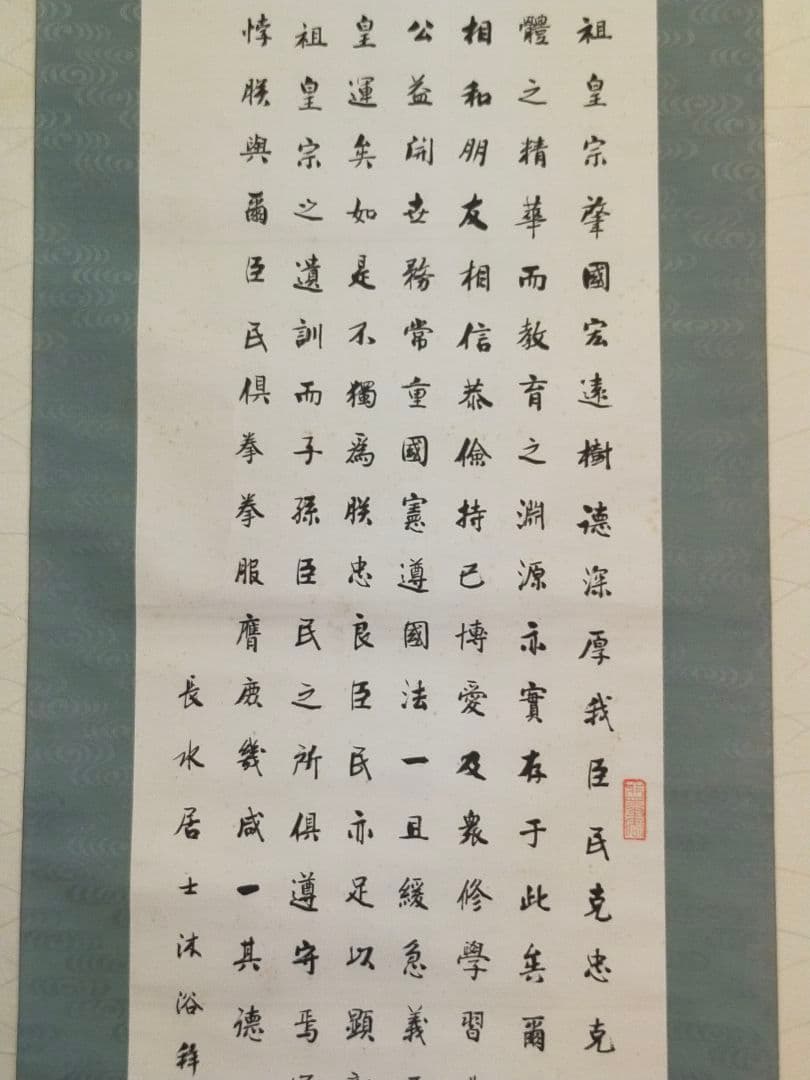 祖皇宗肇國宏遠樹德深厚我臣民克忠克
體之精華而教育之淵源亦實存于此矣爾
相和朋友相信恭儉持己博愛及衆修學習
公益開世務常重國憲遵國法一旦緩急義
皇運矣如是不獨爲朕忠良臣民亦足以顯
祖皇宗之遺訓而子孫臣民之所俱遵守焉
悖朕與爾臣民俱拳拳服膺庶幾咸一其德
長水居士沐浴拜